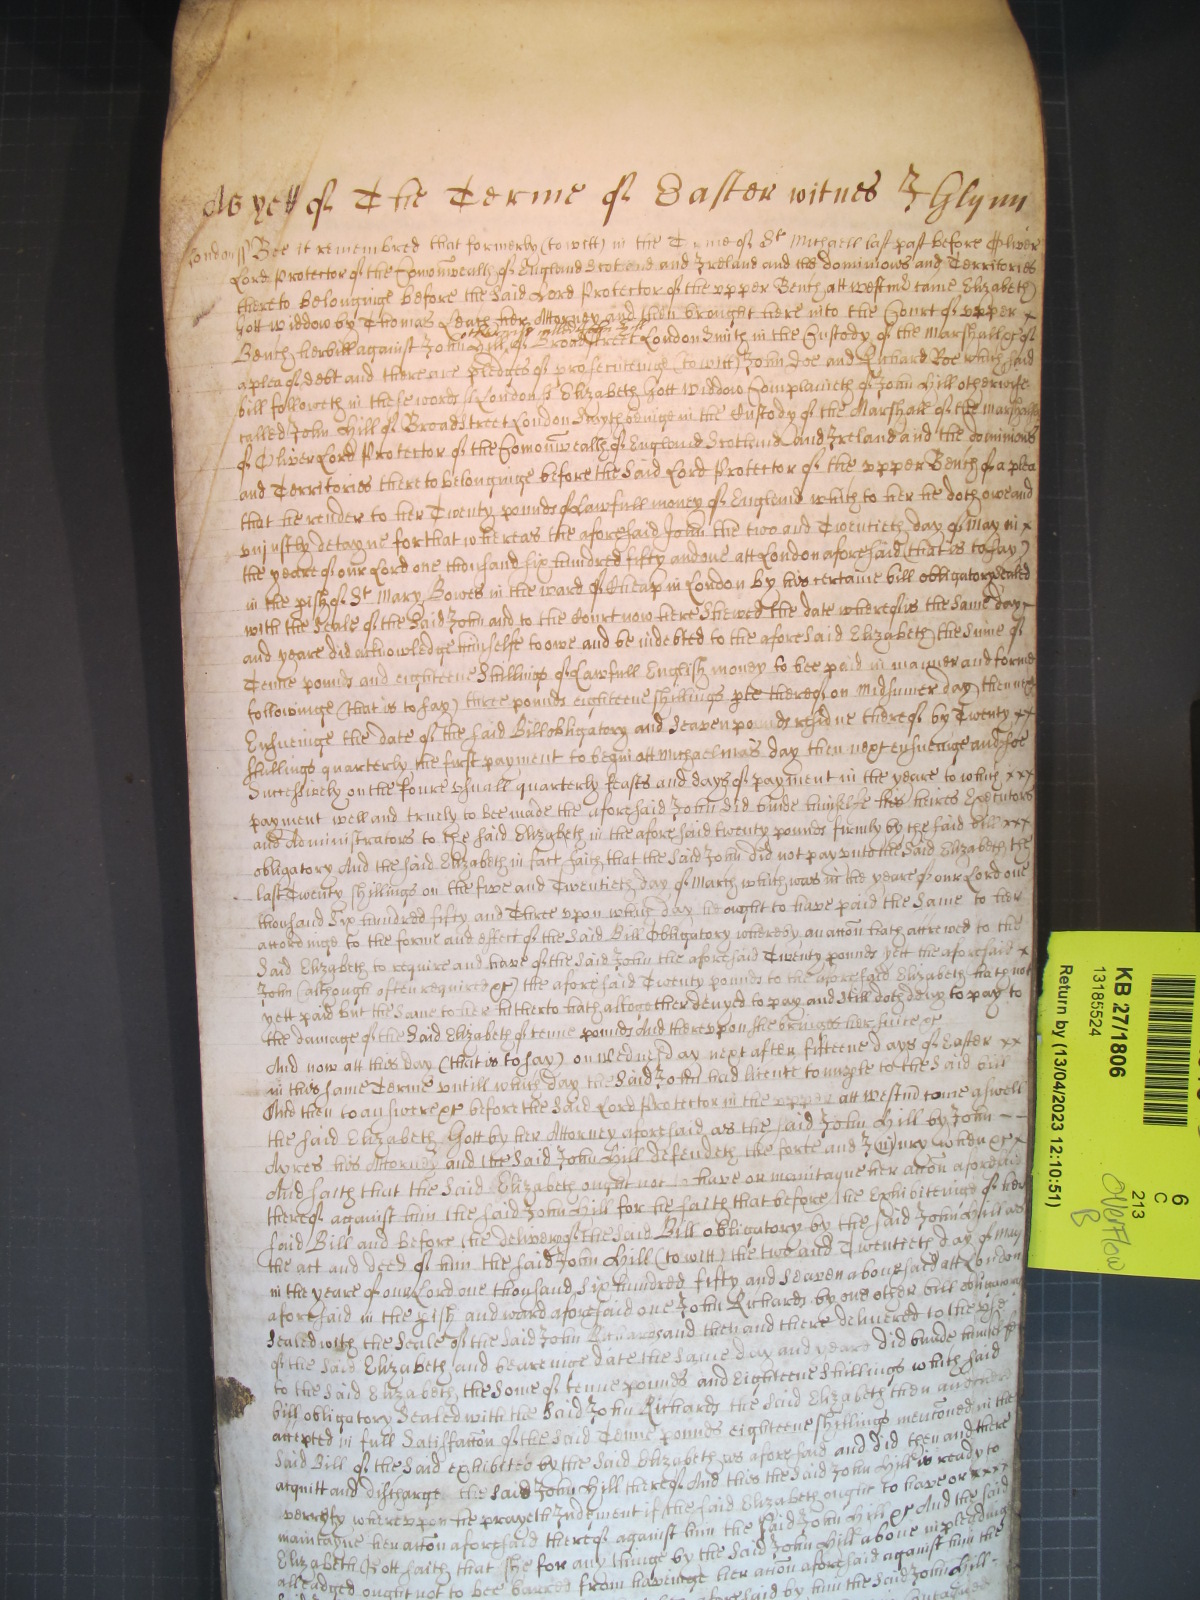 As yett of The Terme of Easter witnes J Glynn
London ss Bee it remembred that formerly (to witt) in the Terme of St Michaell last past before Oliver
Lord Protector of the Comonwealth of England Scotland and Ireland and the dominions and Territories
thereto belonginge before the said Lord Protector of the upper Bench att Westmr came Elizabeth
Gott widdow by Thomas Leath her Attorney and then brought here into the Court of upper x
Bench her bill against John Hill otherwise called John Hill of Broadstreet London Smith in the Custody of the Marshall &c of
a plea of debt and there are pledges of prosecuteinge (to witt) John Doe and Richard Roe which said
bill followeth in these words London ss Elizabeth Gott widdow Complaineth of John Hill otherwise
called John Hill of Broad Street London Smyth beinge in the Custody of the Marshall of the marshalsey
of Oliver Lord Protector of the Comonwealth of England Scotland and Ireland and the dominions
and Territories thereto belonginge before the said Lord Protector of the upper Bench of a plea
that he render to her Twenty pounds of Lawfull money of England which to her he doth owe and
unjustly detayne for that whereas the aforesaid John the two and Twentieth day of May in x
the yeare of our Lord one thousand six hundred fifty and one att London aforesaid (that is to say)
in the pish of St Mary Bowes in the ward of Cheap in London by his certaine bill obligatory sealed
with the seale of the said John and to the Court now here shewed the date whereof is the same day x
and yeare did acknowledge himselfe to owe and be indebted to the aforesaid Elizabeth the sume of
Tenne pounds and eighteene shillings of Lawfull English money to bee paid in manner and forme
followinge (that is to say) three pounds eighteene shillings pte thereof on Midsumer day then next
Ensueinge the date of the said Bill obligatory and seaven pounds residue thereof by Twenty xx
shillings quarterly the first payment to begin att Michaelmas day then next ensueinge and soe
Successively on the foure usuall quarterly feasts and days of payment in the yeare to which xxx
payment well and truely to bee made the aforesaid John did binde himselfe his heires Executors
and Administrators to the said Elizabeth in the aforesaid twenty pounds firmly by the said bill xxx
obligatory And the said Elizabeth in fact saith that the said John did not pay unto the said Elizabeth the
last Twenty shillings on the five and Twentieth day of March which was in the yeare of our Lord one
thousand six hundred fifty and Three upon which day he ought to have paid the same to her
accordinge to the forme and effect of the said Bill Obligatory whereby an accon hath accrewed to the
said Elizabeth to require and have of the said John the aforesaid Twenty pounds yett the aforesaid x
John (although often required &c) the aforesaid Twenty pounds to the aforesaid Elizabeth hath not
yett paid but the same to her hitherto hath altogether denyed to pay and still doth deny to pay to
the damage of the said Elizabeth of tenne pounds And thereupon she bringes her suite &c
And now att this day (that is to say) on Wednesday next after fifteene days of Easter xx
in this same Terme untill which day the said John had licence to imple to the said bill
And then to answere &c before the said Lord Protector in the upper att Westmr come aswell
the said Elizabeth Gott by her Attorney aforesaid as the said John Hill by John
Ayres his Attorney and the said John Hill defendeth the force and Iniury when &c x
And saith that the said Elizabeth ought not to have or maintaque her accon aforesaid
thereof against him the said John Hill for he saith that before the Exhibiteinge of her
said Bill and before the delivery of the said Bill obligatory by the said John Hill as
the act and deed of him the said John Hill (to witt) the two and Twentieth day of May
in the yeare of our Lord one thousand six hundred fifty and seaven abovesaid att London
aforesaid in the pish and ward aforesaid one John Richards by one other bill obligatory
sealed with the seale of the said John Richards and then and there delivered to the use
of the said Elizabeth and beareinge date the same day and yeare did binde himselfe
to the said Elizabeth the some of tenne pounds and Eighteene shillings which said
bill obligatory sealed with the said John Richards the said Elizabeth then and there
accepted in full satisfaccon of the said Tenne pounds eighteene shillings menconed in the
said Bill of the said exhibited by the said Elizabeth as aforesaid and did then and there
acquitt and discharge the said John Hill thereof And this the said John Hill is ready to
verrify whereupon he prayeth Judgment if the said Elizabeth ought to have or xxxx
maintayne her accon aforesaid thereof against him the said John Hill &c And the said
Elizabeth Gott saith that she for any thinge by the said John Hill above in pleadinge
alleadged ought not to bee barred from haveinge her accon aforesaid against him the
aforesaid by him the said John Hill
KB 27/1806
13185524
Return by (13/04/2023 12:10:51)
6
C
213
Overflow
B